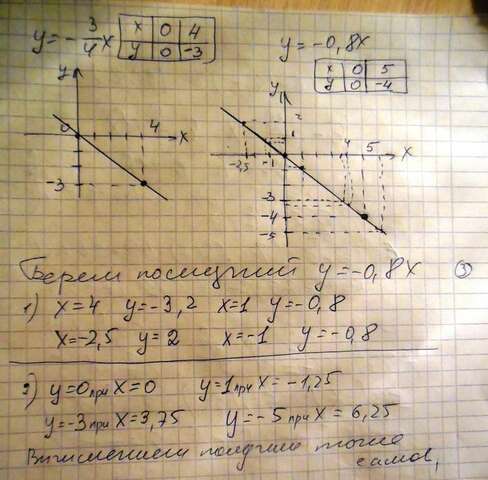 y = -3/4 x
x 0 4
y 0 -3
y = -0,8x
x 0 5
y 0 -4
y
0
4
x
-3
y
2
1
-2,5
-1
1
4
5
x
-3
-4
-5
Берем последний y = -0,8x ③
1) x=4 y=-3,2 x=1 y=-0,8
x=-2,5 y=2 x=-1 y=-0,8
2) y=0 при x=0 y=1 при x=-1,25
y=-3 при x=3,75 y=-5 при x=6,25
Вычислением получим то же
самое,